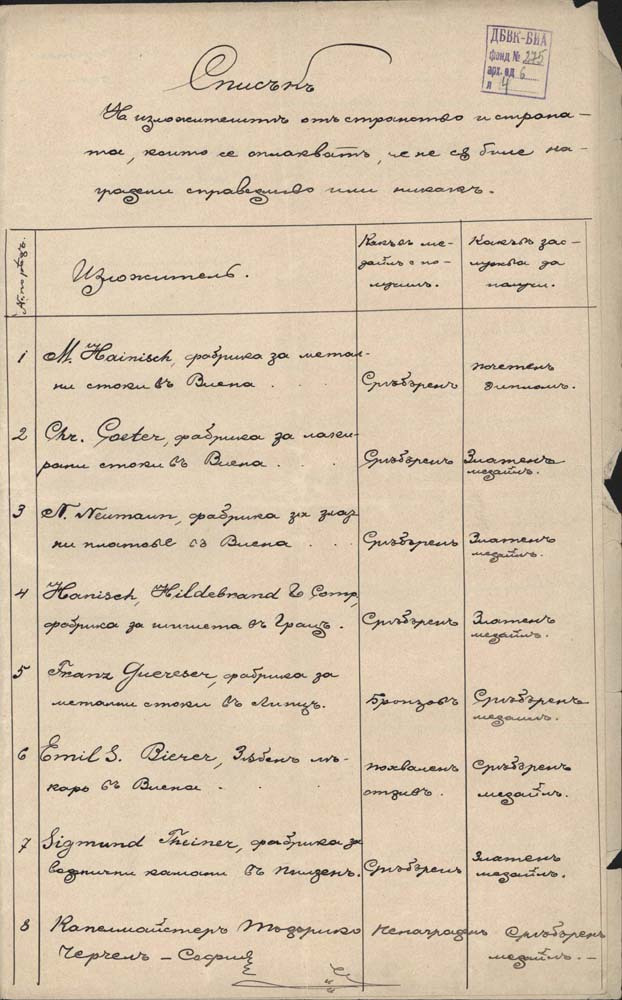 ДБВК-БИА
фонд № 275
арх. ед 6
л 4
Списъкъ
На изложителитѣ отъ странство и страна-
та, които се оплакватъ, че не сѫ биле на-
градени справедливо или никакъ.
№ по редъ.
Изложитель.
Какъвъ ме-
дайлъ е по-
лучилъ.
Какъвъ зас-
лужва да
получи.
1 M. Hainisch, фабрика за метал-
ни стоки въ Виена . . . Сръбъренъ
почетенъ
дипломъ.
2 Chr. Goeter, фабрика за лаки-
рани стоки въ Виена . . . Сръбъренъ
Златенъ
медайлъ.
3 N. Neumann, фабрика за
ни платове въ Виена . . . Сръбъренъ
Златенъ
медайлъ.
4 Hanisch, Hildebrand & Comp,
фабрика за шишета въ Грацъ. Сръбъренъ
Златенъ
медайлъ.
5 Franz, фабрика за
метални стоки въ Линцъ. Бронзовъ
Сръбъренъ
медайлъ.
6 Emil S. Bierer, Зѫбенъ лѣ-
карь въ Виена . . .
похваленъ
отзивъ.
Сръбъренъ
медайлъ.
7 Sigmund Theiner, фабрика за
воденични камани въ Пилзенъ. Сръбъренъ
Златенъ
медайлъ.
8 Капелмайстеръ Ненаграденъ Сръбъренъ
– София медайлъ. –